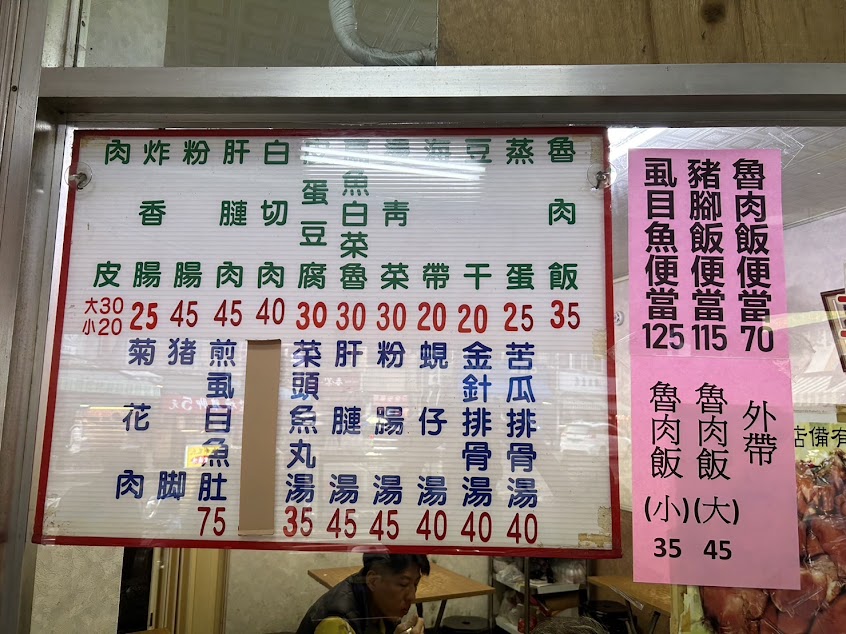 魯肉飯 35
蒸蛋 25
豆干 20
海帶 20
青菜 30
魚白菜魯 30
蛋豆腐 30
白切肉 40
肝腱肉 45
粉腸 45
炸香腸 25
肉皮 大30 小20
苦瓜排骨湯 40
金針排骨湯 40
蜆仔湯 40
粉腸湯 45
肝腱湯 45
菜頭魚丸湯 35
煎虱目魚肚 75
豬脚
菊花肉
魯肉飯便當 70
豬腳飯便當 115
虱目魚便當 125
外帶
魯肉飯(大) 45
魯肉飯(小) 35
店備有